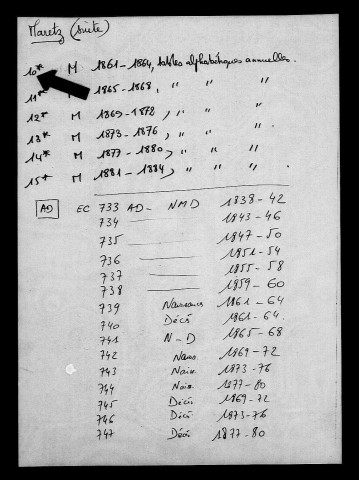 Maretz (suite)
10* M 1861-1864, tables alphabétiques annuelles.
11* 1865-1868, " " "
12* M 1869-1872, " " "
13* M 1873-1876, " " "
14* M 1877-1880, " " "
15* M 1881-1884, " " "
AD EC 733 AD- NMD 1838-42
734 1843-46
735 1847-50
736 1851-54
737 1855-58
738 1859-60
739 Naissances 1861-64
740 Décès 1861-64.
741 N-D 1865-68
742 Naiss. 1869-72
743 Naiss. 1873-76
744 Naiss. 1877-80
745 Décès 1869-72
746 Décès 1873-76
747 Décès 1877-80